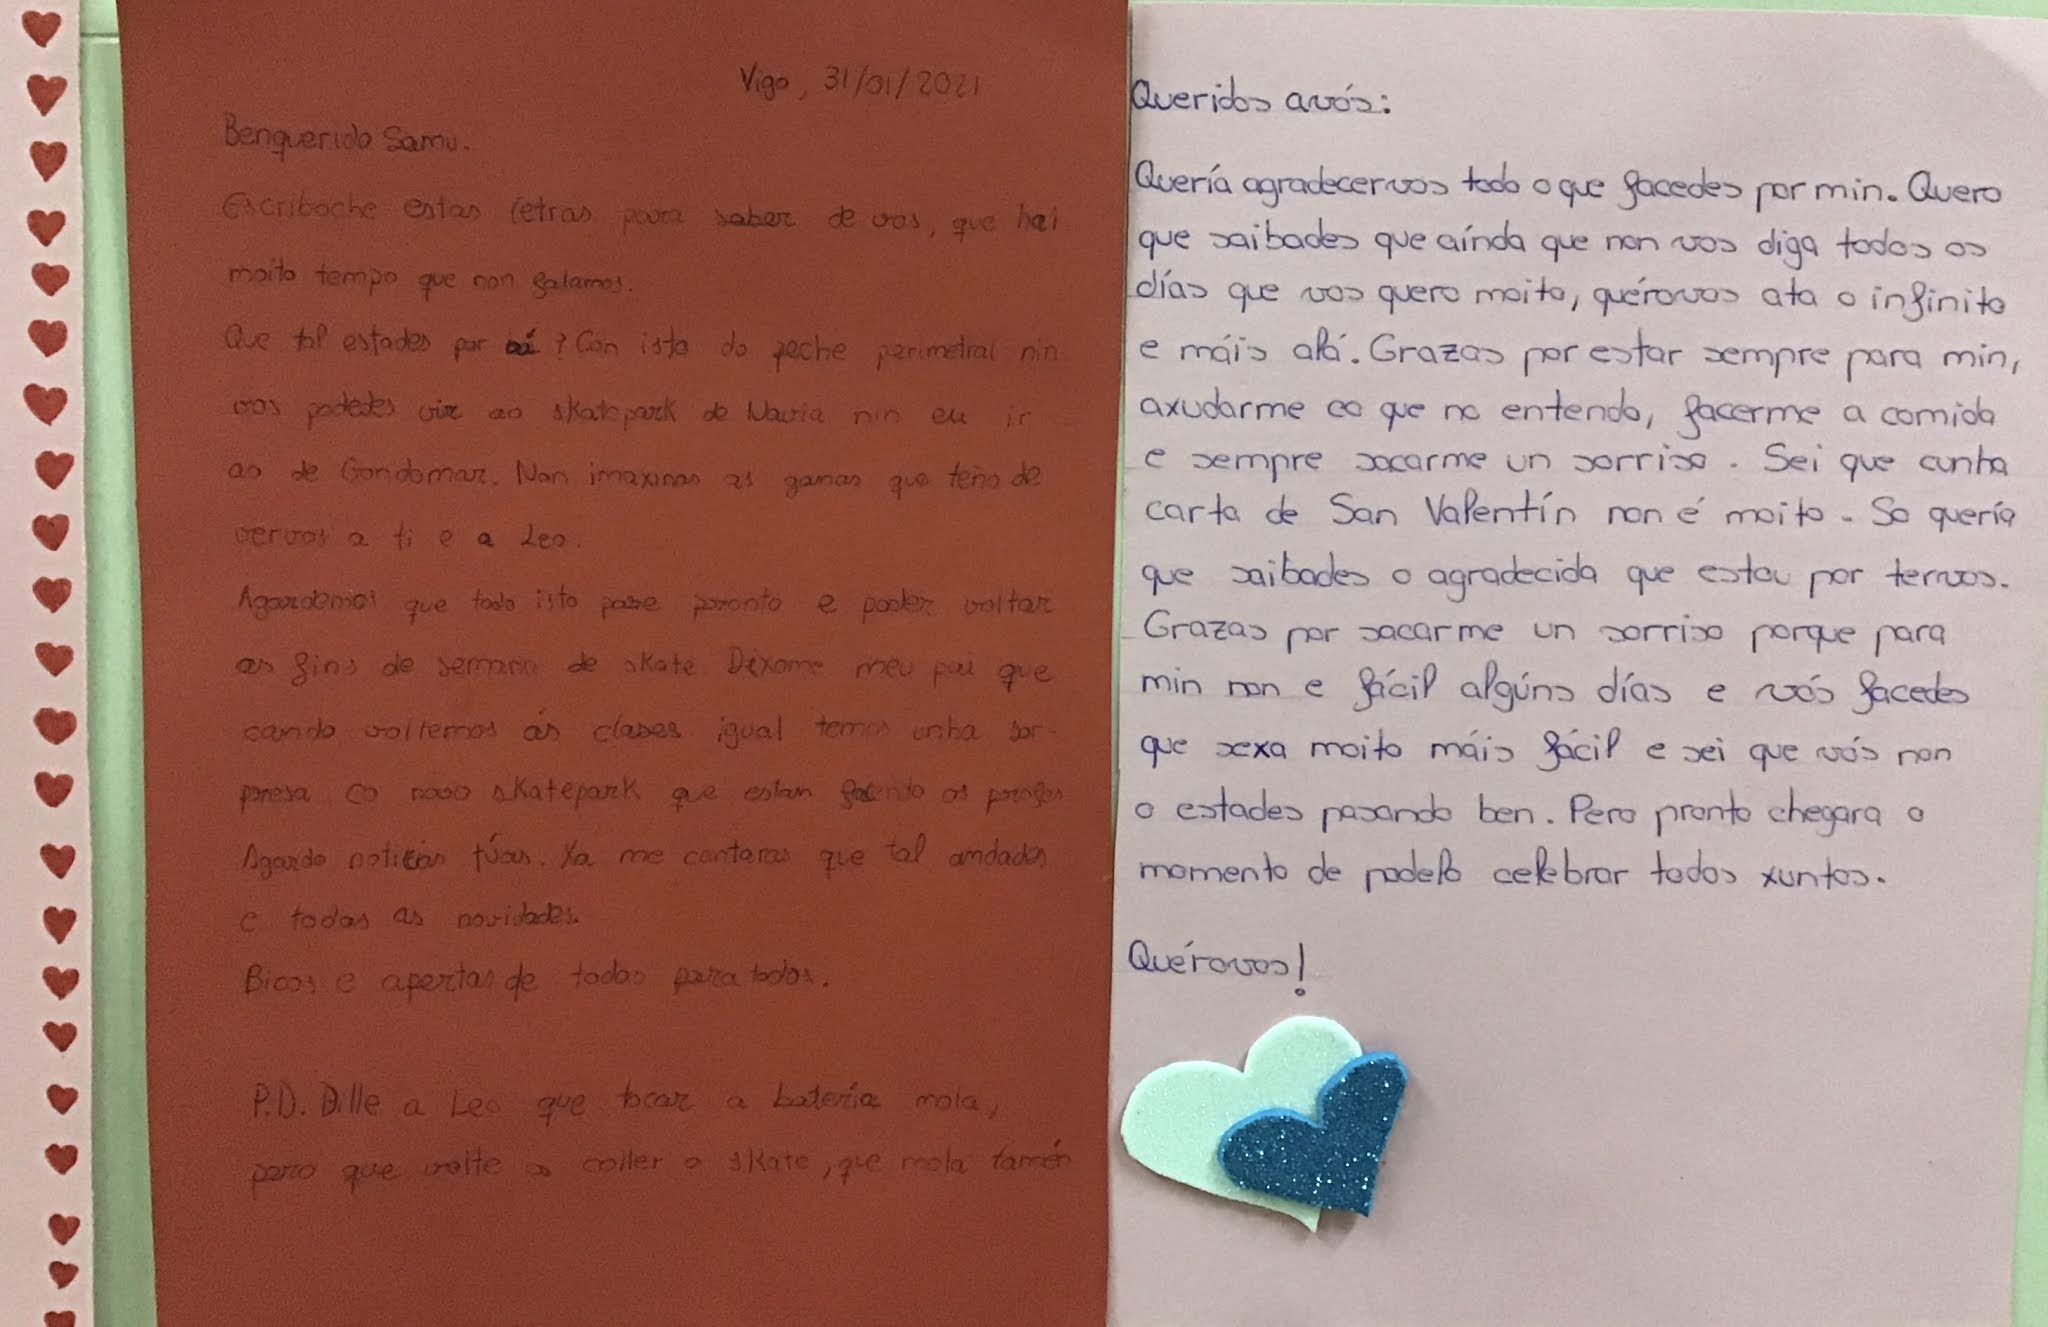 Vigo, 31/01/2021
Benquerido Samu.
Escriboche estas letras para saber de vos, que hai
moito tempo que non falamos.
Que tal estades por aí? Con isto do peche perimetral nin
vos podedes vir ao skatepark de Navia nin eu ir
ao de Gondomar. Non imaxinas as ganas que teño de
vervos a ti e a Leo.
Agardemos que todo isto pase pronto e poder voltar
as fins de semana de skate. Dixome meu pai que
cando voltemos ás clases igual temos unha sor-
presa co novo skatepark que estan facendo os profes
Agardo noticias túas. Xa me contaras que tal andades
e todas as novidades.
Bicos e apertas de todos para todos.
P.D. Dille a Leo que tocar a batería mola,
pero que volte a coller o skate, que mola tamén
Queridos avós:
Quería agradecervos todo o que facedes por min. Quero
que saibades que aínda que non vos diga todos os
días que vos quero moito, quérovos ata o infinito
e máis alá. Grazas por estar sempre para min,
axudarme co que no entendo, facerme a comida
e sempre sacarme un sorriso. Sei que cunha
carta de San Valentín non é moito. So quería
que saibades o agradecida que estou por tervos.
Grazas por sacarme un sorriso porque para
min non e fácil algúns días e vós facedes
que sexa moito máis fácil e sei que vós non
o estades pasando ben. Pero pronto chegara o
momento de podelo celebrar todos xuntos.
Quérovos!